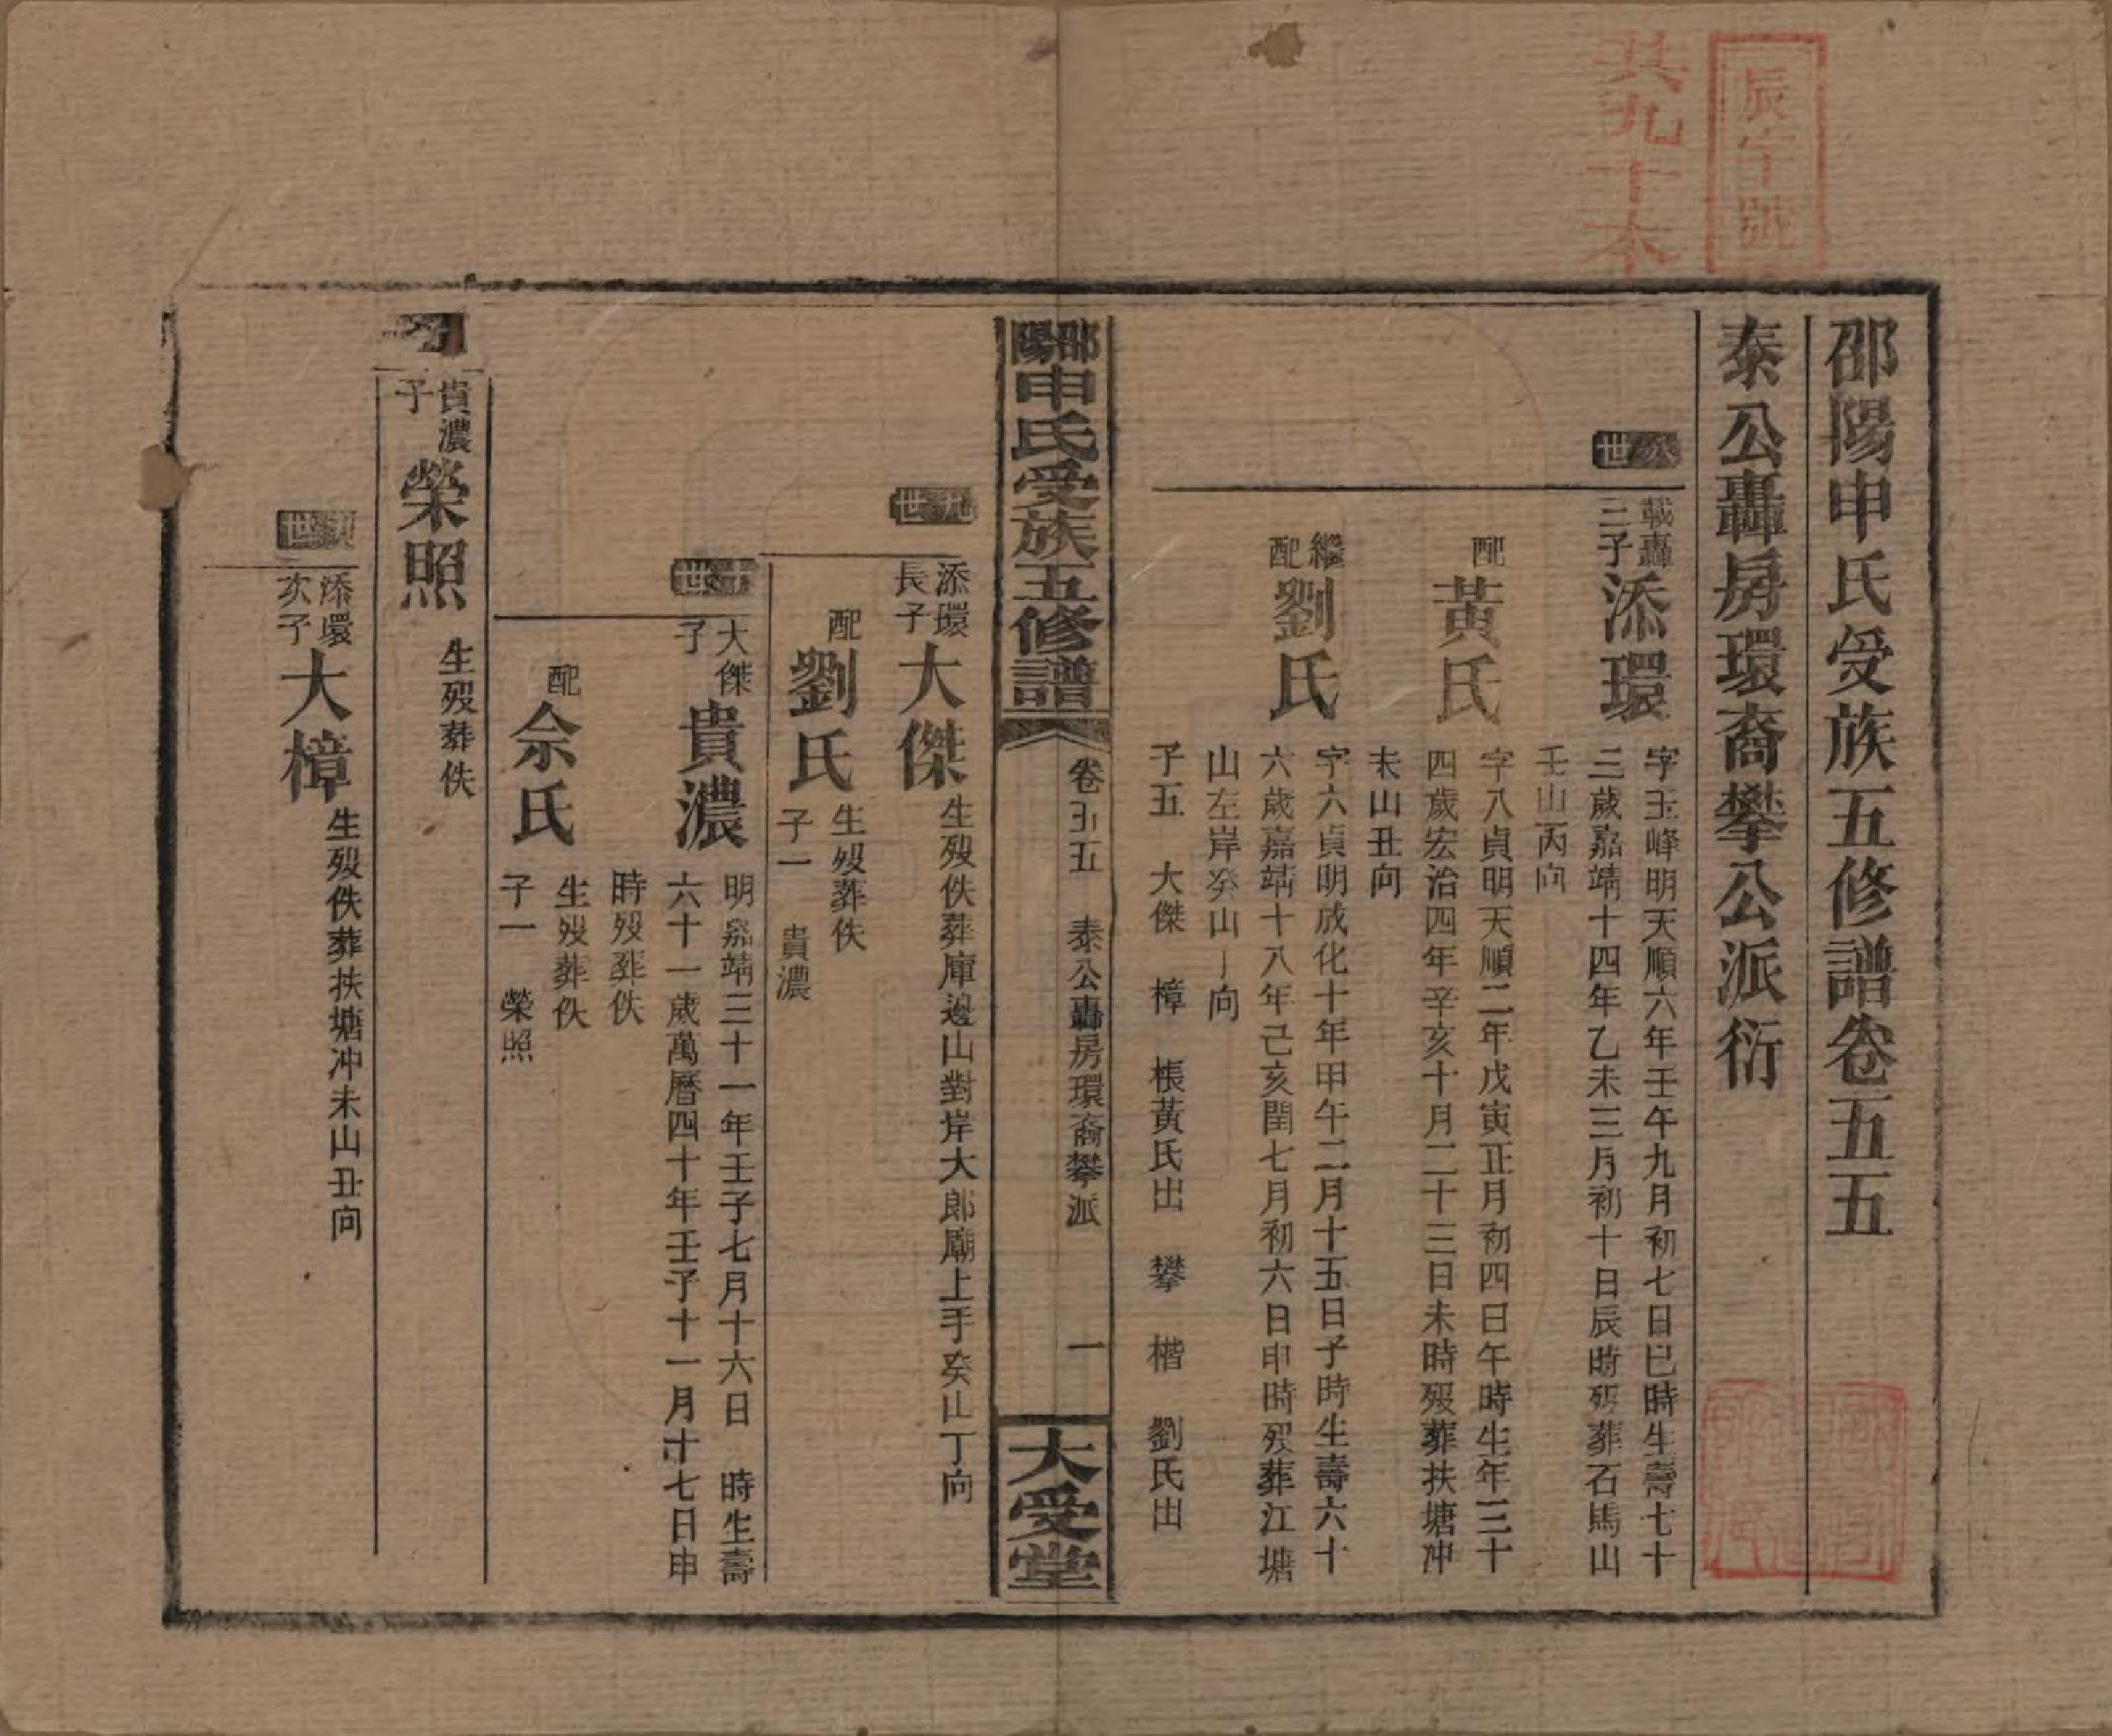 辰字號
共九十本
邵陽申氏受族五修譜卷五五
泰公轟房環裔攀公派衍
八世
載轟三子
添環
字玉峰明天順六年壬午九月初七日巳時生壽七十
三歲嘉靖十四年乙未三月初十日辰時歿葬石馬山
壬山丙向
配
黃氏
字八貞明天順二年戊寅正月初四日午時生年三十
四歲宏治四年辛亥十月二十三日未時歿葬扶塘冲
未山丑向
繼配
劉氏
字六貞明成化十年甲午二月十五日子時生壽六十
六歲嘉靖十八年己亥閏七月初六日申時歿葬江塘
山左岸癸山丁向
子五 大傑 樟 棖黃氏出 攀 楷 劉氏出
邵陽申氏受族五修譜
卷五五 泰公轟房環裔攀派 一
大受堂
九世
添環長子
大傑
生歿佚葬庫邊山對岸大郎廟上手癸山丁向
配
劉氏
生歿葬佚
子一 貴濃
十世
大傑子
貴濃
明嘉靖三十一年壬子七月十六日 時生壽
六十一歲萬曆四十年壬子十一月十七日申
時歿葬佚
配
佘氏
生歿葬佚
子一 榮照
貴濃子
榮照
生歿葬佚
九世
添環次子
大樟
生歿佚葬扶塘冲未山丑向